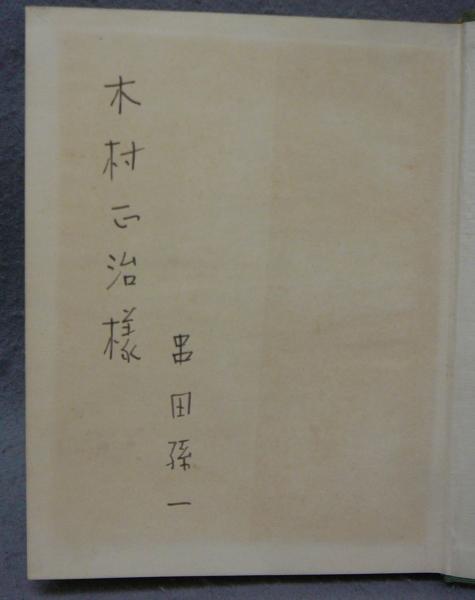 木村正治様
串田孫一